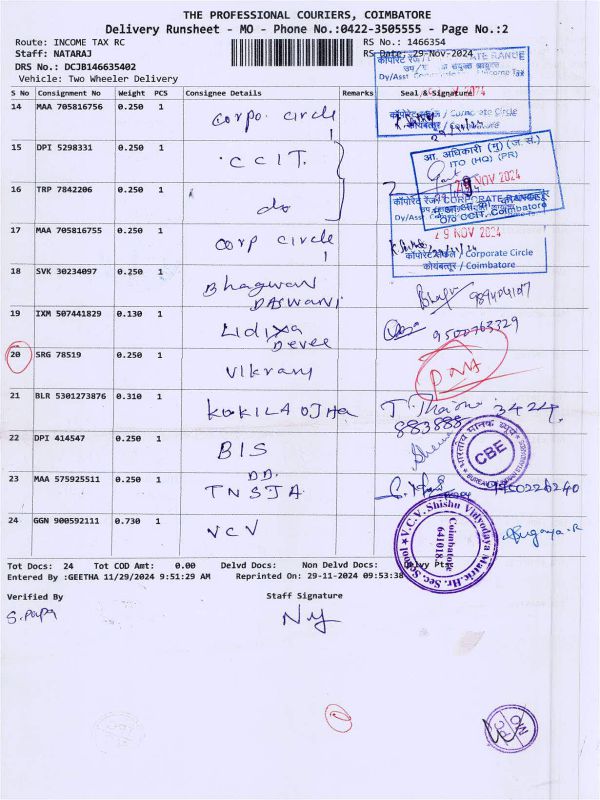 THE PROFESSIONAL COURIERS, COIMBATORE
Delivery Runsheet - MO - Phone No.:0422-3505555 - Page No.:2
Route: INCOME TAX RC RS No.: 1466354
Staff: NATARAJ RS Date: 29-Nov-2024
DRS No.: DCJB146635402
Vehicle: Two Wheeler Delivery
S No Consignment No Weight PCS Consignee Details Remarks Seal & Signature
14 MAA 705816756 0.250 1 Corpo. circle
15 DPI 5298331 0.250 1 CCIT.
आ. अधिकारी (मु) (ज. सं.)
ITO (HQ) (PR)
29 NOV 2024
O/o CCIT, Coimbatore
16 TRP 7842206 0.250 1 do
17 MAA 705816755 0.250 1 Corp circle
29 NOV 2024
/ Corporate Circle
कोयंबत्तूर / Coimbatore
18 SVK 30234097 0.250 1 Bhagwan
DASWANI
19 IXM 507441829 0.130 1 Lidiya
Devee
9500763329
20 SRG 78519 0.250 1 Vikram
21 BLR 5301273876 0.310 1 KOKILA OJHA
883888 3424
22 DPI 414547 0.250 1 BIS
भारतीय मानक ब्यूरो
CBE
23 MAA 575925511 0.250 1 DD.
TNSTA
9450226240
24 GGN 900592111 0.730 1 VCV
V.C.V. Shishu Vidyodaya Matric. Hr. Sec. School
Coimbatore
641018
Suganya.R
Tot Docs: 24 Tot COD Amt: 0.00 Delvd Docs: Non Delvd Docs: Delvy Ptc:
Entered By :GEETHA 11/29/2024 9:51:29 AM Reprinted On: 29-11-2024 09:53:38
Verified By Staff Signature
S. Papa